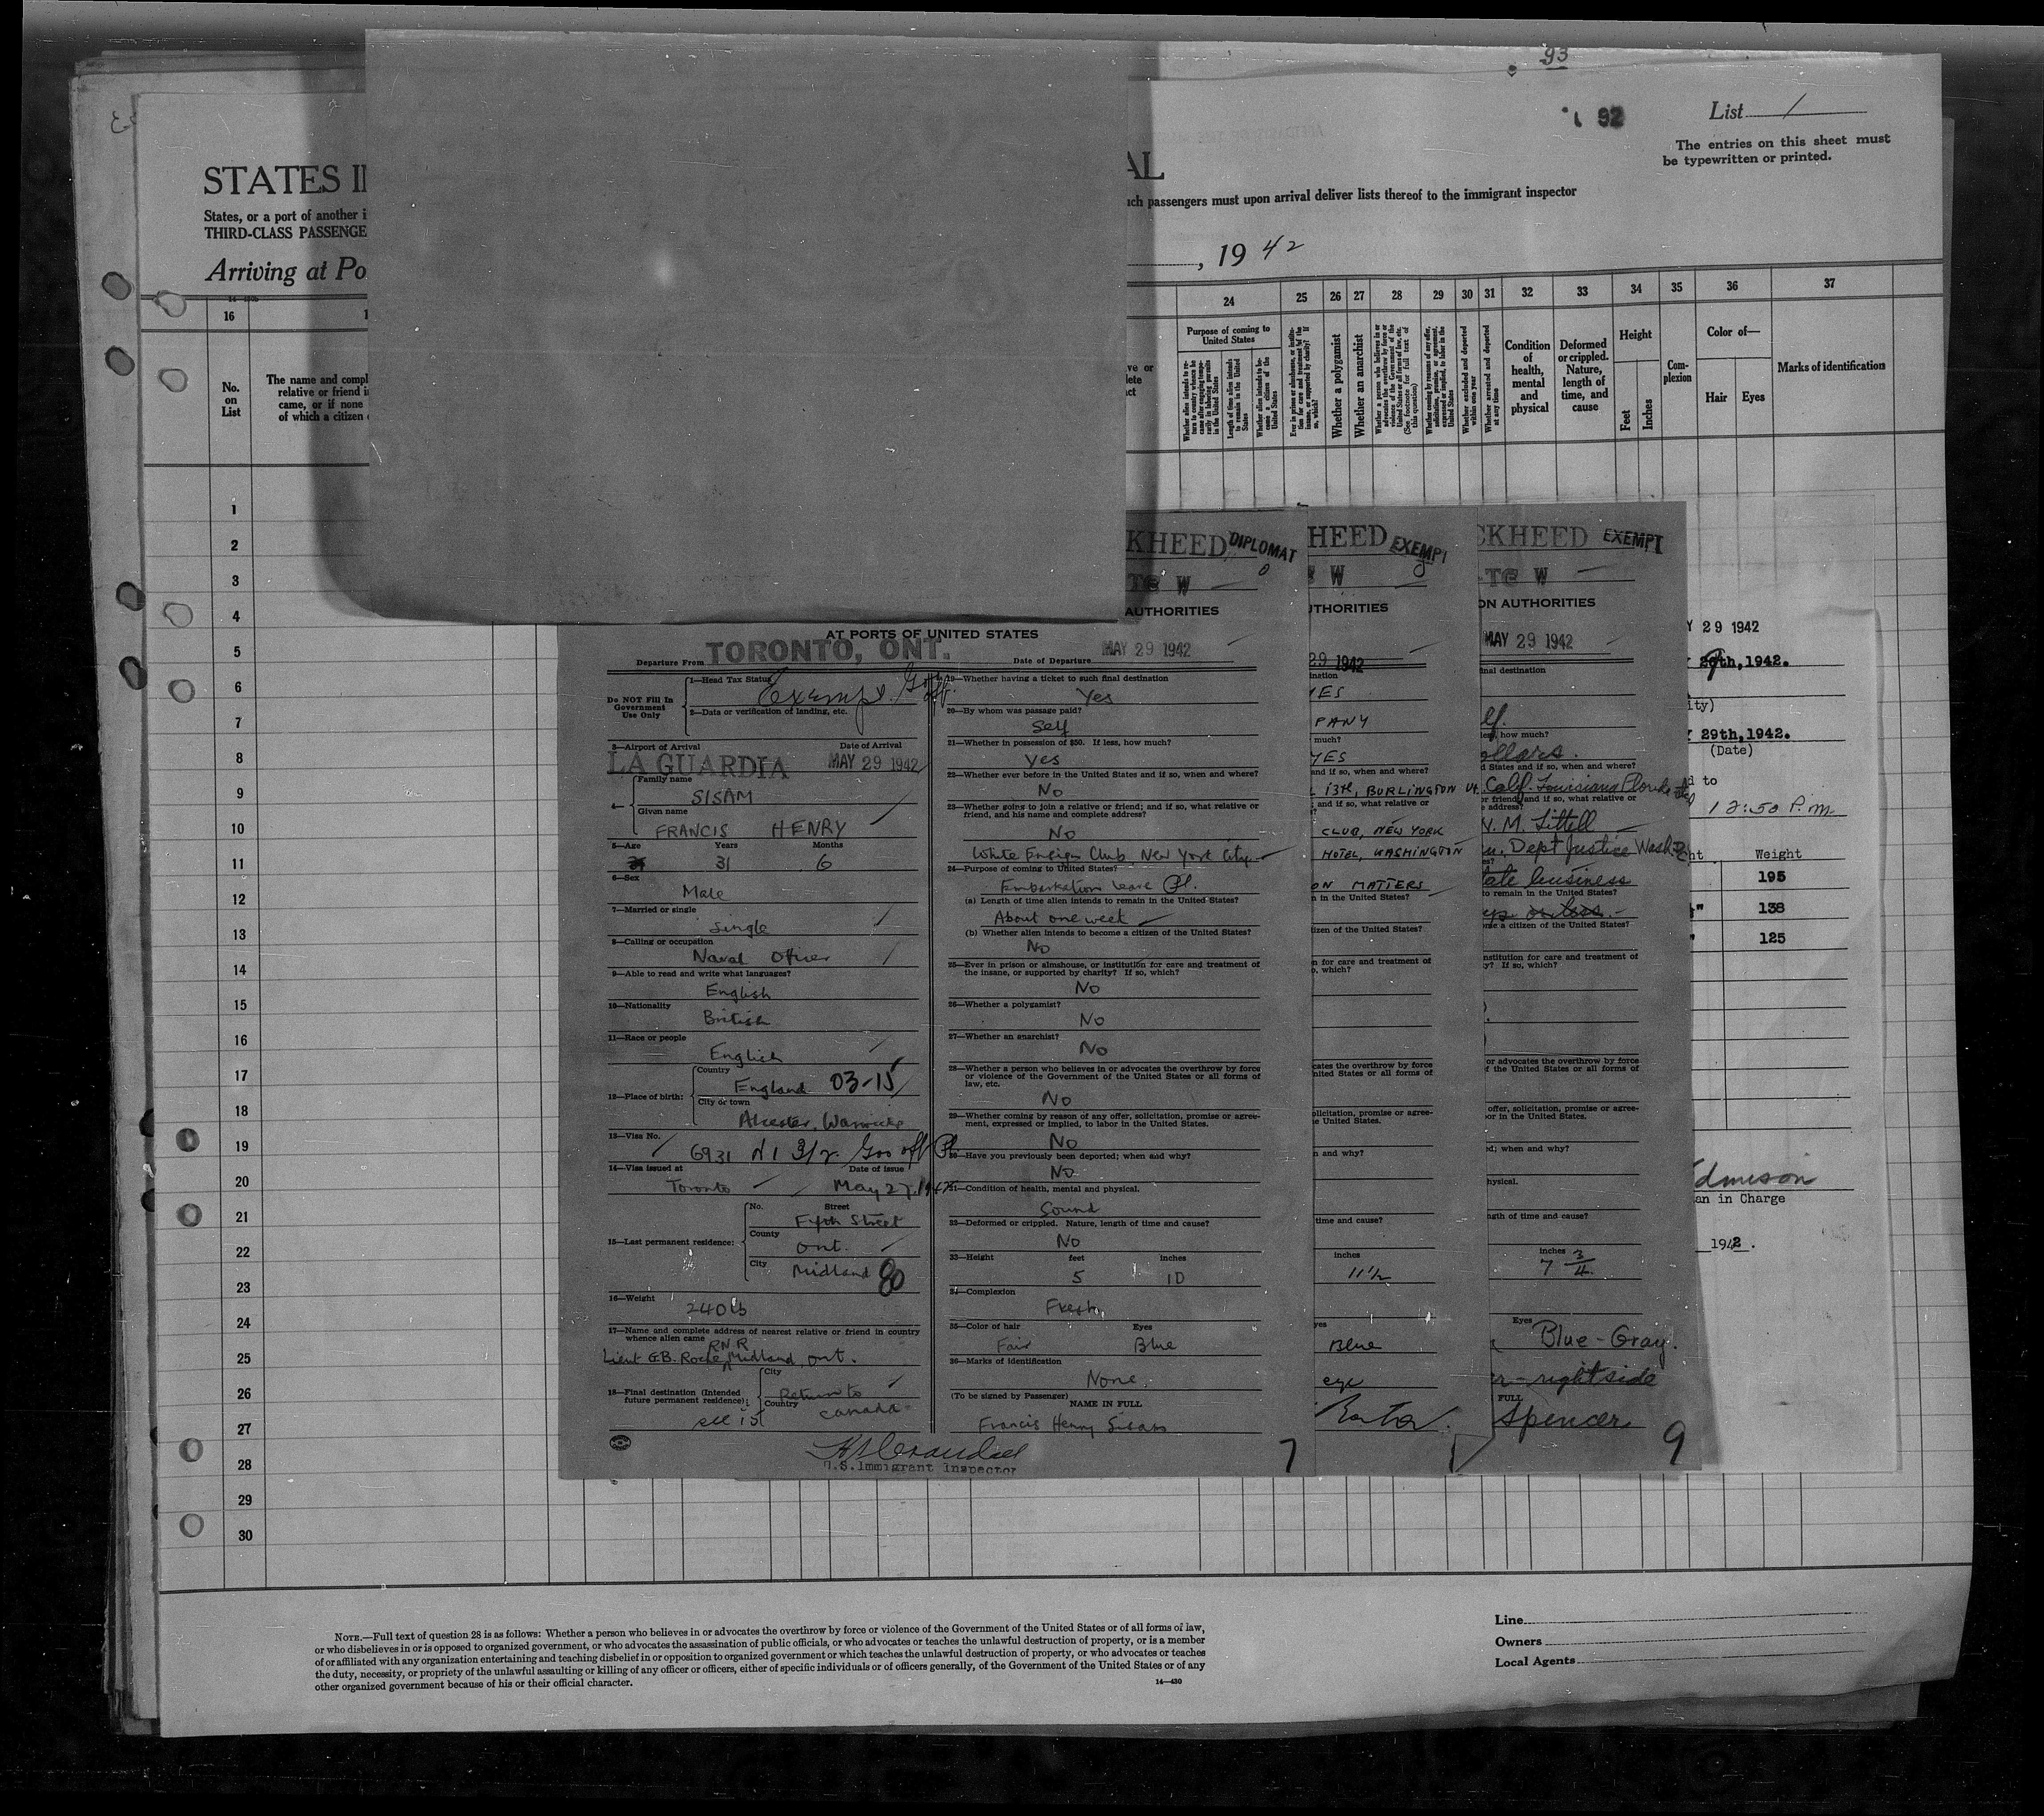 93
92
List 1
The entries on this sheet must
be typewritten or printed.
STATES I
AL
States, or a port of another i
such passengers must upon arrival deliver lists thereof to the immigrant inspector
THIRD-CLASS PASSENGE
Arriving at Po
, 19 42
16
No.
on
List
The name and compl
relative or friend i
came, or if none
of which a citizen
24
25
26
27
28
29
30
31
32
33
34
35
36
37
Purpose of coming to
United States
Whether a polygamist
Whether an anarchist
Condition
of
health,
mental
and
physical
Deformed
or crippled.
Nature,
length of
time, and
cause
Height
Feet
Inches
Com-
plexion
Color of—
Hair
Eyes
Marks of identification
1
2
3
4
5
6
7
8
9
10
11
12
13
14
15
16
17
18
19
20
21
22
23
24
25
26
27
28
29
30
KHEED DIPLOMAT
W
AUTHORITIES
AT PORTS OF UNITED STATES
Departure From TORONTO, ONT.
Date of Departure MAY 29 1942
Do NOT Fill In
Government
Use Only
1—Head Tax Status
Exempt. Gov. off.
2—Data or verification of landing, etc.
3—Airport of Arrival Date of Arrival
LA GUARDIA MAY 29 1942
4—
Family name
SISAM
Given name
FRANCIS HENRY
5—Age Years Months
31 6
6—Sex
Male
7—Married or single
Single
8—Calling or occupation
Naval Officer
9—Able to read and write what languages?
English
10—Nationality
British
11—Race or people
English
12—Place of birth:
Country
England 03-15
City or town
Alcester, Warwicks
13—Visa No.
6931
14—Visa issued at Date of issue
Toronto May 27, 1942
15—Last permanent residence:
No. Street
Fifth Street
County
Ont.
City
Midland 80
16—Weight
240 lb
17—Name and complete address of nearest relative or friend in country
whence alien came
R.N.R.
Lieut G.B. Roche, Midland, Ont.
18—Final destination (Intended
future permanent residence):
City
Return to
Country
Canada
see 15
19—Whether having a ticket to such final destination
Yes
20—By whom was passage paid?
Self
21—Whether in possession of $50. If less, how much?
Yes
22—Whether ever before in the United States and if so, when and where?
No
23—Whether going to join a relative or friend; and if so, what relative or
friend, and his name and complete address?
No
White Ensign Club, New York City
24—Purpose of coming to United States?
Embarkation leave
(a) Length of time alien intends to remain in the United States?
About one week
(b) Whether alien intends to become a citizen of the United States?
No
25—Ever in prison or almshouse, or institution for care and treatment of
the insane, or supported by charity? If so, which?
No
26—Whether a polygamist?
No
27—Whether an anarchist?
No
28—Whether a person who believes in or advocates the overthrow by force
or violence of the Government of the United States or all forms of
law, etc.
No
29—Whether coming by reason of any offer, solicitation, promise or agree-
ment, expressed or implied, to labor in the United States.
No
30—Have you previously been deported; when and why?
No
31—Condition of health, mental and physical.
Sound
32—Deformed or crippled. Nature, length of time and cause?
No
33—Height feet inches
5 10
34—Complexion
Fresh
35—Color of hair Eyes
Fair Blue
36—Marks of identification
None
(To be signed by Passenger)
NAME IN FULL
Francis Henry Sisam
U.S. Immigrant Inspector
7
HEED EXEMPT
W
THORITIES
29 1942
ination
YES
PANY
much?
YES
and if so, when and where?
13th, BURLINGTON Vt.
; and if so, what relative or
CLUB, NEW YORK
HOTEL, WASHINGTON
ON MATTERS
n in the United States?
tizen of the United States?
n for care and treatment of
o, which?
cates the overthrow by force
nited States or all forms of
olicitation, promise or agree-
e United States.
n and why?
time and cause?
inches
11½
yes
Blue
eye
CKHEED EXEMPT
W
ON AUTHORITIES
MAY 29 1942
inal destination
lf.
less, how much?
ollars.
d States and if so, when and where?
Calif. Louisiana Florida
or friend; and if so, what relative or
e address?
N. M. Littell
Dept Justice Wash.
tate business
to remain in the United States?
me a citizen of the United States?
nstitution for care and treatment of
y? If so, which?
or advocates the overthrow by force
f the United States or all forms of
offer, solicitation, promise or agree-
or in the United States.
ed; when and why?
hysical.
ngth of time and cause?
inches
7 3/4
Eyes
Blue-Gray.
r-right side
FULL
Spencer
9
Y 29 1942
29th, 1942.
ity)
29th, 1942.
(Date)
d to
12:50 P.m
ht Weight
195
138
125
dmison
an in Charge
1942.
NOTE.—Full text of question 28 is as follows: Whether a person who believes in or advocates the overthrow by force or violence of the Government of the United States or of all forms of law,
or who disbelieves in or is opposed to organized government, or who advocates the assassination of public officials, or who advocates or teaches the unlawful destruction of property, or is a member
of or affiliated with any organization entertaining and teaching disbelief in or opposition to organized government or which teaches the unlawful destruction of property, or who advocates or teaches
the duty, necessity, or propriety of the unlawful assaulting or killing of any officer or officers, either of specific individuals or of officers generally, of the Government of the United States or of any
other organized government because of his or their official character.
14—430
Line
Owners
Local Agents